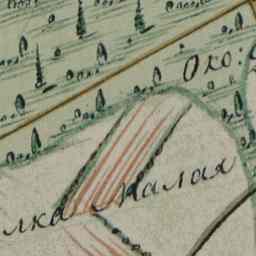 Око:
лка малая